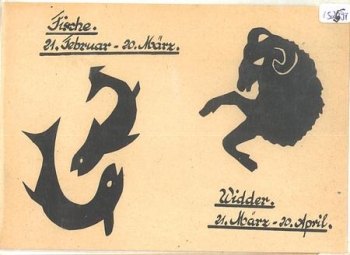 Fische.
21. Februar - 20. März.
Widder.
21. März - 20. April.